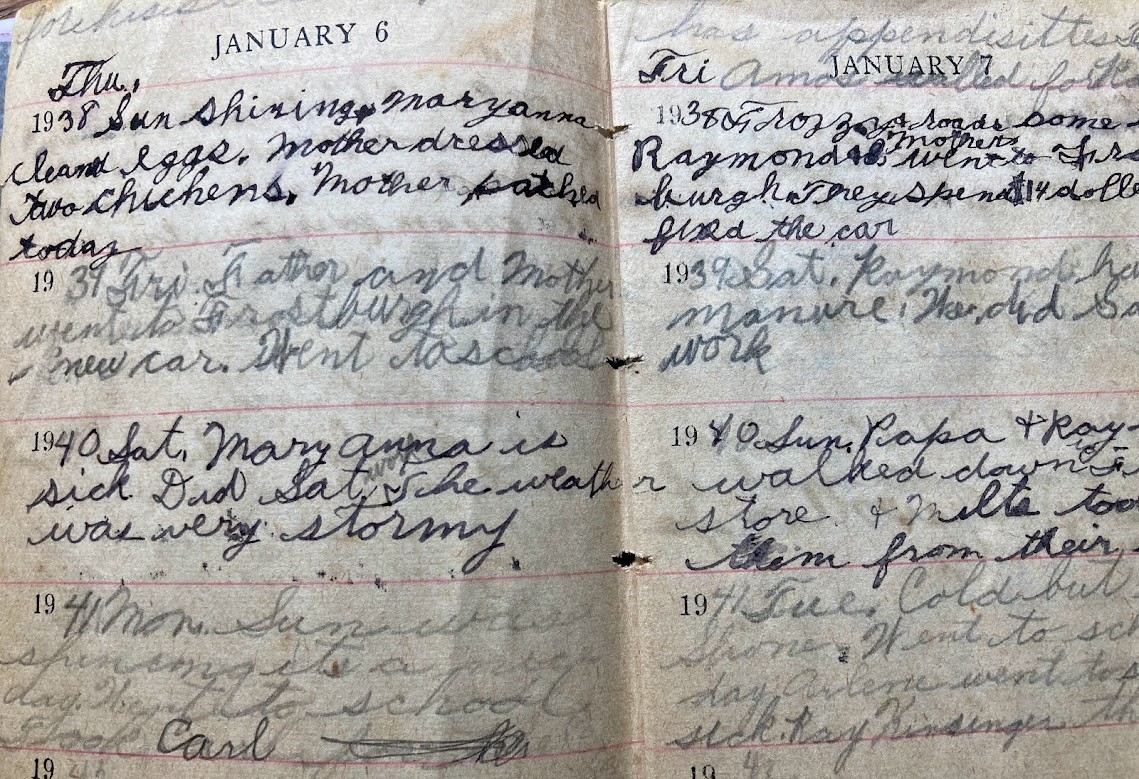 JANUARY 6
Thu.
1938 Sun shining, Maryanna
cleand eggs. Mother dressed
two chickens. Mother patched
today
1939 Fri. Father and Mother
went to Frostburgh in the
new car. Went to school
1940 Sat. Mary anna is
sick Did Sat. work The weather
was very stormy
1941 Mon. Sun was
a
day. Went to school
Carl
19
has appendisittes
JANUARY 7
Fri Amos called for
1938 roads some-
Raymond & Mothers went to Fros
burgh. They spend $14 dolle
fixd the car
1939 Sat. Raymond ha
manure. We did Sa
work
1940 Sun. Papa & Ray-
walked down to F
store & Milte too
them from their
1941 Tue. Cold but
Shone. Went to sch
day. Arlene went to
sick. Ray Kinsinger
19